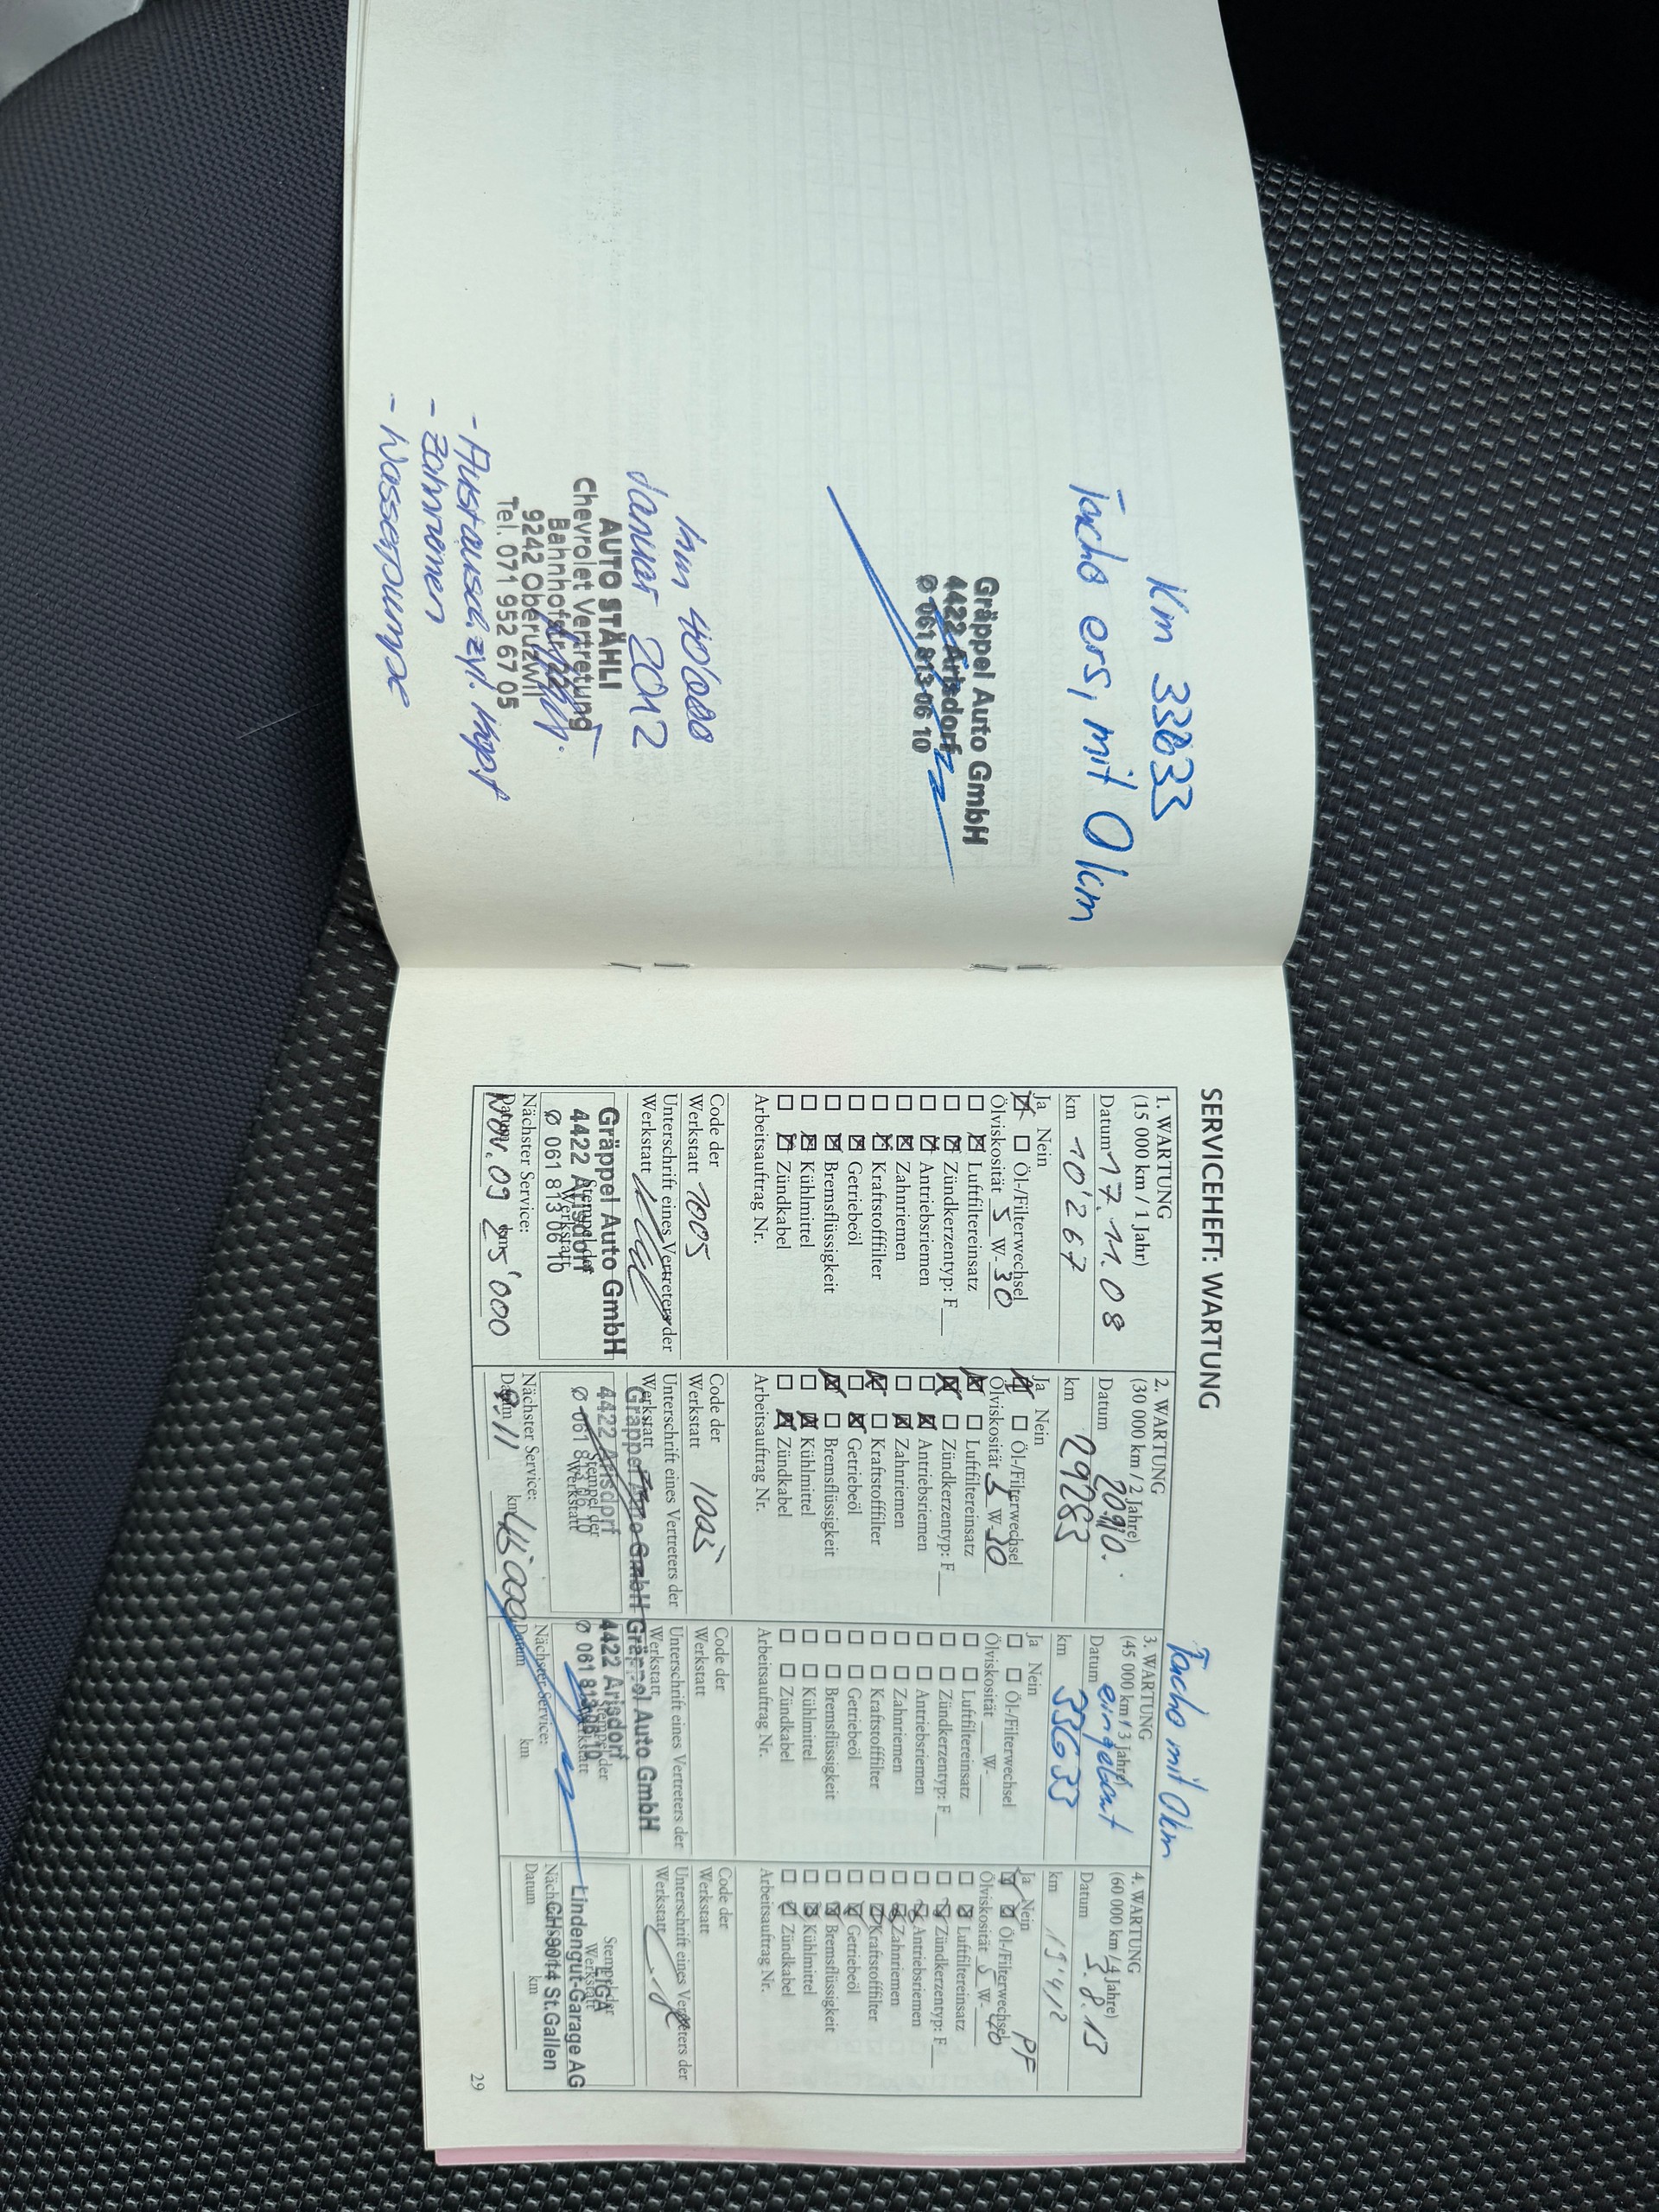 Km 33633
Tacho ers, mit 0 km
Gräppel Auto GmbH
4422 Arisdorf
Ø 061 813 06 10
km 40'000
Januar 2012
AUTO STÄHLI
Chevrolet Vertretung
Bahnhofstr. 22
9242 Oberuzwil
Tel. 071 952 67 05
- Austausch zyl. kopf
- Zahnriemen
- Wasserpumpe
SERVICEHEFT: WARTUNG
1. WARTUNG
(15 000 km / 1 Jahr)
Datum 17.11.08
km 10'267
Ja Nein
Öl-/Filterwechsel
Ölviskosität 5 W- 30
Luftfiltereinsatz
Zündkerzentyp: F
Antriebsriemen
Zahnriemen
Kraftstofffilter
Getriebeöl
Bremsflüssigkeit
Kühlmittel
Zündkabel
Arbeitsauftrag Nr.
Code der
Werkstatt 1005
Unterschrift eines Vertreters der
Werkstatt
Gräppel Auto GmbH
4422 Arisdorf
Ø 061 813 06 10
Stempel der
Werkstatt
Nächster Service:
Datum Nov. 09 km 25'000
2. WARTUNG
(30 000 km / 2 Jahre)
Datum
km 29283
Ja Nein
Öl-/Filterwechsel
Ölviskosität 5 W- 30
Luftfiltereinsatz
Zündkerzentyp: F
Antriebsriemen
Zahnriemen
Kraftstofffilter
Getriebeöl
Bremsflüssigkeit
Kühlmittel
Zündkabel
Arbeitsauftrag Nr.
Code der
Werkstatt 1005
Unterschrift eines Vertreters der
Werkstatt
Gräppel Auto GmbH
4422 Arisdorf
Ø 061 813 06 10
Stempel der
Werkstatt
Nächster Service:
Datum 9.11 km 45000
Tacho mit 0 km
eingebaut
3. WARTUNG
(45 000 km / 3 Jahre)
Datum
km 33633
Ja Nein
Öl-/Filterwechsel
Ölviskosität W-
Luftfiltereinsatz
Zündkerzentyp: F
Antriebsriemen
Zahnriemen
Kraftstofffilter
Getriebeöl
Bremsflüssigkeit
Kühlmittel
Zündkabel
Arbeitsauftrag Nr.
Code der
Werkstatt
Unterschrift eines Vertreters der
Werkstatt
Gräppel Auto GmbH
4422 Arisdorf
Ø 061 813 06 10
Stempel der
Werkstatt
Nächster Service:
Datum km
4. WARTUNG
(60 000 km / 4 Jahre)
Datum 5.8.13
km 19'412
PF
Ja Nein
Öl-/Filterwechsel
Ölviskosität 5 W- 40
Luftfiltereinsatz
Zündkerzentyp: F
Antriebsriemen
Zahnriemen
Kraftstofffilter
Getriebeöl
Bremsflüssigkeit
Kühlmittel
Zündkabel
Arbeitsauftrag Nr.
Code der
Werkstatt
Unterschrift eines Vertreters der
Werkstatt
Stempel der
Werkstatt
LIGA
Lindengut-Garage AG
CH-9014 St.Gallen
Datum km
29